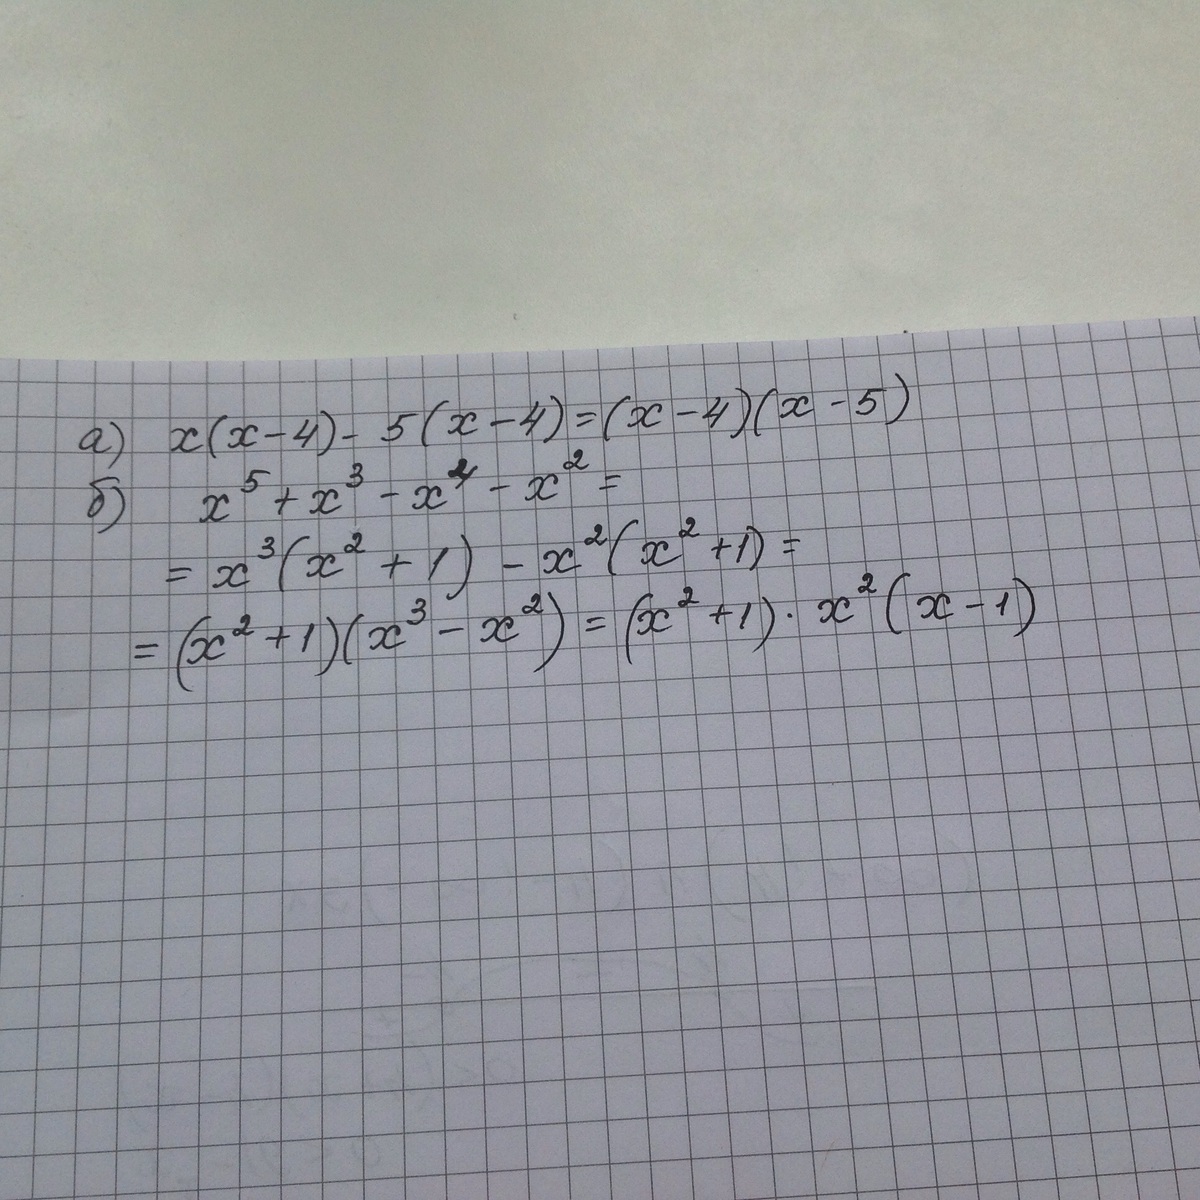 а) x(x-4)-5(x-4)=(x-4)(x-5)
б) x⁵+x³-x⁴-x²=
=x³(x²+1)-x²(x²+1)=
=(x²+1)(x³-x²)=(x²+1)·x²(x-1)